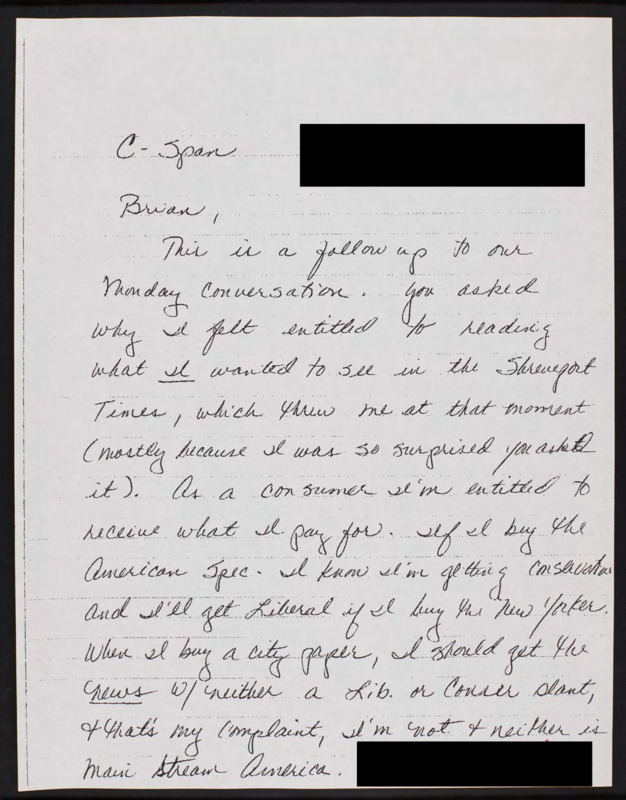 C-Span
Brian,
This is a follow up to our
Monday conversation. You asked
why I felt entitled to reading
what I wanted to see in the Shreveport
Times, which threw me at that moment
(mostly because I was so surprised you asked
it). As a consumer I'm entitled to
receive what I pay for. If I buy the
American Spec. I know I'm getting conservative
and I'll get Liberal if I buy the New Yorker.
When I buy a city paper, I should get the
news w/ neither a Lib. or Conser slant,
& that's my complaint, I'm not & neither is
main stream America.